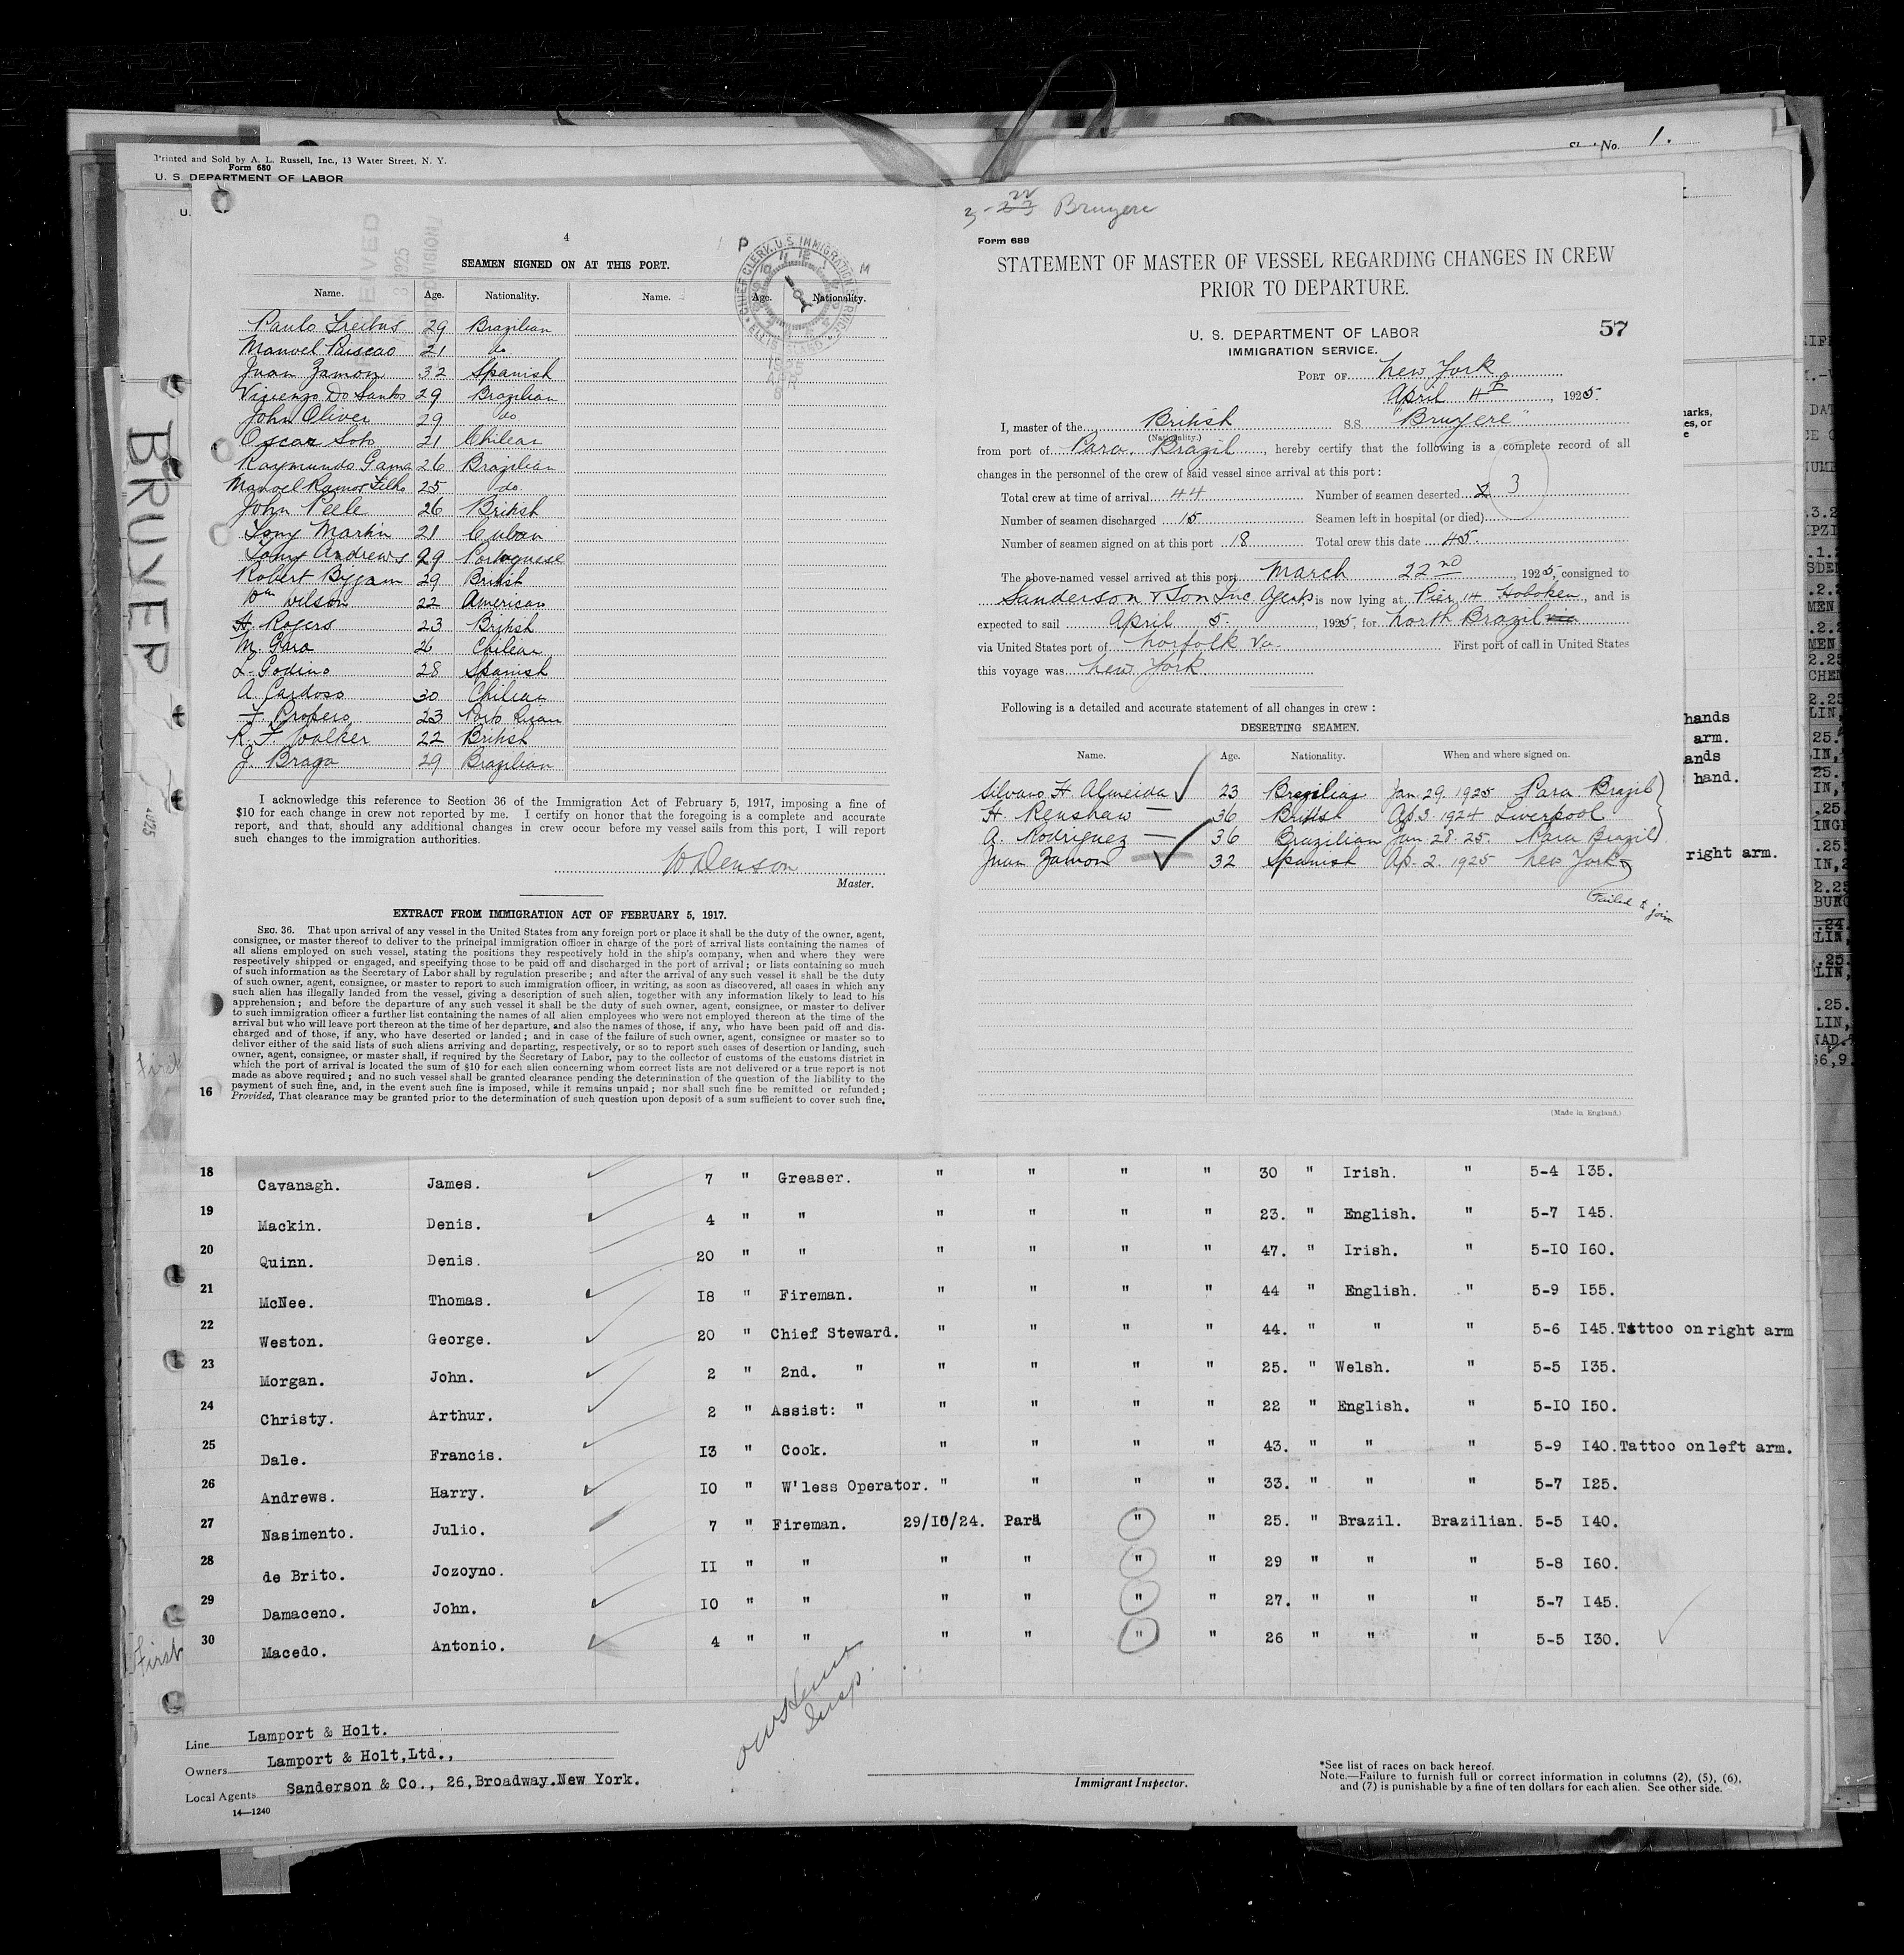 Printed and Sold by A. L. Russell, Inc., 13 Water Street, N. Y.
Form 680
U. S. DEPARTMENT OF LABOR
No. 1.
BRUYER
4
SEAMEN SIGNED ON AT THIS PORT.
Name. Age. Nationality. Name. Age. Nationality.
Paulo Freitas 29 Brazilian
Manoel 21 do
Juan Zamon 32 Spanish
Vicienzo Do Santos 29 Brazilian
John Oliver 29 do
Oscar Soto 21 Chilean
Raymundo Gama 26 Brazilian
Manoel Ramos Filho 25 do.
John Peele 26 British
Tony Martin 21 Cuban
Tony Andrews 29 Portuguese
Robert Bygam 29 British
Wm Wilson 22 American
H. Rogers 23 British
M. Gara 26 Chilean
L. Godino 28 Spanish
A. Cardoso 30 Chilean
F. Propero 23 Porto Rican
R. F. Walker 22 British
J. Braga 29 Brazilian
I acknowledge this reference to Section 36 of the Immigration Act of February 5, 1917, imposing a fine of
$10 for each change in crew not reported by me. I certify on honor that the foregoing is a complete and accurate
report, and that, should any additional changes in crew occur before my vessel sails from this port, I will report
such changes to the immigration authorities.
Master.
EXTRACT FROM IMMIGRATION ACT OF FEBRUARY 5, 1917.
SEC. 36. That upon arrival of any vessel in the United States from any foreign port or place it shall be the duty of the owner, agent,
consignee, or master thereof to deliver to the principal immigration officer in charge of the port of arrival lists containing the names of
all aliens employed on such vessel, stating the positions they respectively hold in the ship's company, when and where they were
respectively shipped or engaged, and specifying those to be paid off and discharged in the port of arrival; or lists containing so much
of such information as the Secretary of Labor shall by regulation prescribe; and after the arrival of any such vessel it shall be the duty
of such owner, agent, consignee, or master to report to such immigration officer, in writing, as soon as discovered, all cases in which any
such alien has illegally landed from the vessel, giving a description of such alien, together with any information likely to lead to his
apprehension; and before the departure of any such vessel it shall be the duty of such owner, agent, consignee, or master to deliver
to such immigration officer a further list containing the names of all alien employees who were not employed thereon at the time of the
arrival but who will leave port thereon at the time of her departure, and also the names of those, if any, who have been paid off and dis-
charged and of those, if any, who have deserted or landed; and in case of the failure of such owner, agent, consignee or master so to
deliver either of the said lists of such aliens arriving and departing, respectively, or so to report such cases of desertion or landing, such
owner, agent, consignee, or master shall, if required by the Secretary of Labor, pay to the collector of customs of the customs district in
which the port of arrival is located the sum of $10 for each alien concerning whom correct lists are not delivered or a true report is not
made as above required; and no such vessel shall be granted clearance pending the determination of the question of the liability to the
payment of such fine, and, in the event such fine is imposed, while it remains unpaid; nor shall such fine be remitted or refunded;
Provided, That clearance may be granted prior to the determination of such question upon deposit of a sum sufficient to cover such fine.
16
CHIEF CLERK, U.S. IMMIGRATION SERVICE
3-23 22 Bruyere
Form 689
STATEMENT OF MASTER OF VESSEL REGARDING CHANGES IN CREW
PRIOR TO DEPARTURE.
U. S. DEPARTMENT OF LABOR
57
IMMIGRATION SERVICE.
PORT OF New York
April 4th, 1925.
I, master of the British S.S. "Bruyere"
(Nationality.)
from port of Para. Brazil, hereby certify that the following is a complete record of all
changes in the personnel of the crew of said vessel since arrival at this port:
Total crew at time of arrival 44 Number of seamen deserted 2 3
Number of seamen discharged 15 Seamen left in hospital (or died)
Number of seamen signed on at this port 18 Total crew this date 45
The above-named vessel arrived at this port March 22nd, 1925, consigned to
Sanderson & Son Inc. Agents, is now lying at Pier 14 Hoboken, and is
expected to sail April 5., 1925, for North Brazil via
via United States port of Norfolk Va. First port of call in United States
this voyage was New York.
Following is a detailed and accurate statement of all changes in crew:
DESERTING SEAMEN.
Name. Age. Nationality. When and where signed on.
Silvaro H. Almeida 23 Brazilian Jan. 29. 1925 Para Brazil
H. Renshaw 36 British Ap 3. 1924 Liverpool
A. Rodriguez 36 Brazilian Jan. 28. 25. Para Brazil
Juan Zamon 32 Spanish Ap. 2. 1925 New York
Failed to join
(Made in England.)
hands
arm.
ands
hand.
right arm.
18 Cavanagh. James. 7 " Greaser. " " " " 30 " Irish. " 5-4 I35.
19 Mackin. Denis. 4 " " " " " " 23. " English. " 5-7 I45.
20 Quinn. Denis. 20 " " " " " " 47. " Irish. " 5-I0 I60.
21 McNee. Thomas. I8 " Fireman. " " " " 44 " English. " 5-9 I55.
22 Weston. George. 20 " Chief Steward. " " " " 44. " " " 5-6 I45. Tattoo on right arm
23 Morgan. John. 2 " 2nd. " " " " " 25. " Welsh. " 5-5 I35.
24 Christy. Arthur. 2 " Assist: " " " " " 22 " English. " 5-I0 I50.
25 Dale. Francis. I3 " Cook. " " " " 43. " " " 5-9 I40. Tattoo on left arm.
26 Andrews. Harry. I0 " W'less Operator. " " " " 33. " " " 5-7 I25.
27 Nasimento. Julio. 7 " Fireman. 29/I0/24. Para " " 25. " Brazil. Brazilian. 5-5 I40.
28 de Brito. Jozoyno. II " " " " " " 29 " " " 5-8 I60.
29 Damaceno. John. I0 " " " " " " 27. " " " 5-7 I45.
30 Macedo. Antonio. 4 " " " " " " 26 " " " 5-5 I30.
First
Insp.
Line Lamport & Holt.
Owners Lamport & Holt,Ltd.,
Local Agents Sanderson & Co., 26,Broadway.New York.
14—1240
Immigrant Inspector.
*See list of races on back hereof.
Note.—Failure to furnish full or correct information in columns (2), (5), (6),
and (7) is punishable by a fine of ten dollars for each alien. See other side.